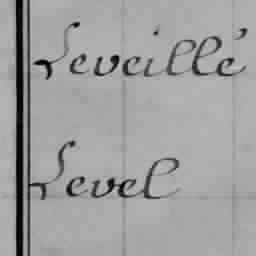 Leveillé
Level